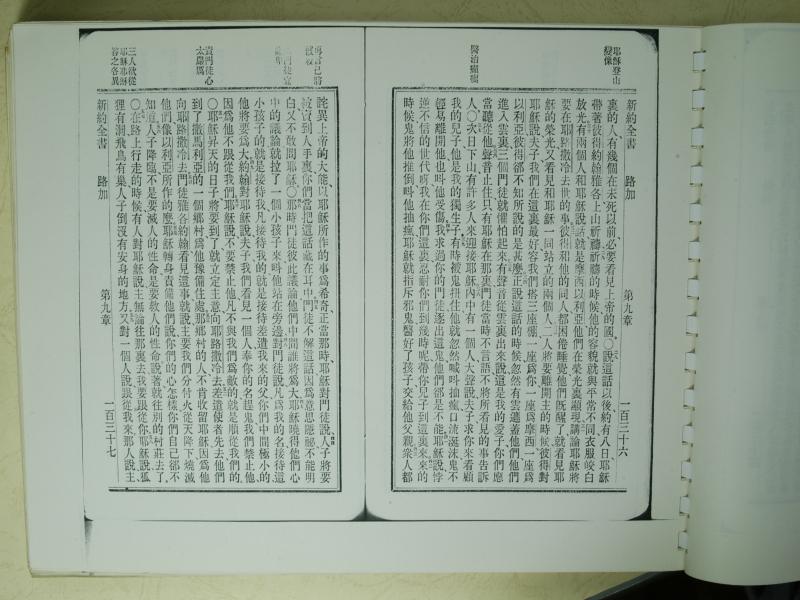 耶穌登山
變像
醫治癲癇
新約全書 路加 第九章 一百三十六
裏的人有幾個在未死以前必要看見上帝的國〇說這話以後約有八日耶穌
帶著彼得約翰雅各上山祈禱祈禱的時候他的容貌就與平常不同衣服皎白
放光有兩個人和耶穌說話就是摩西以利亞他們在榮光裏顯現講論耶穌將
要在耶路撒冷去世的事彼得和他的同人都困倦睡覺他們既醒了就看見耶
穌的榮光又看見和耶穌一同站立的兩個人二人將要離開主的時候彼得對
耶穌說夫子我們在這裏最好容我們搭三座棚一座為你一座為摩西一座為
以利亞彼得卻不知所說的是甚麼正說這話的時候忽然有雲遮蓋他們他們
進入雲裏三個門徒就懼怕起來有聲音從雲裏出來說這是我的愛子你們應
當聽從他聲音止住只有耶穌在那裏門徒當時不言語不將所看見的事告訴
人〇次日下山有許多人來迎接耶穌內中有一個人大聲說夫子求你來看顧
我的兒子他是我的獨生子有時被鬼拑住他就忽然喊叫抽瘋口流涎沫鬼不
輕易離開他也叫他受傷我求過你的門徒逐出這鬼他們卻是不能耶穌說悖
逆不信的世代呀我在你們這裏忍耐你們到幾時呢帶你兒子到這裏來來的
時候鬼將他推倒叫他抽瘋耶穌就指斥邪鬼醫好了孩子交給他父親衆人都
再言己將
被殺
門徒宜
謙卑
責門徒心
太嚴厲
三人欲從
耶穌耶穌
答之各異
詫異上帝的大能以耶穌所作的事為希奇正當那時耶穌對門徒說人子將要
被賣到人手裏你們當把這話藏在耳中門徒不解這話因為意思隱祕不能明
白又不敢問耶穌〇那時門徒彼此議論他們中間誰將為大耶穌曉得他們心
中的議論就拉了一個小孩子來叫他站在旁邊對門徒說凡為我的名接待這
小孩子的就是接待我凡接待我的就是接待差遣我來的父你們中間極小的
他將要為大約翰對耶穌說夫子我們看見一個人奉你的名趕鬼我們禁止他
因為他不跟從我們耶穌說不要禁止他凡不與我們為敵的就是順從我們的
〇耶穌昇天的日子將要到了就立定主意向耶路撒冷去差遣使者先去他們
到了撒馬利亞的一個鄉村為他豫備住處那鄉村的人不肯收留耶穌因為他
向耶路撒冷去門徒雅各約翰看見這事就說主要我們分付火從天降下燒滅
他們像以利亞所作的麼耶穌轉身責備他們說你們的心怎樣你們自己卻不
知道人子降臨不是要滅人的性命是要救人的性命說著就往別的村莊去了
〇在路上行走的時候有人對耶穌說主無論往那裏去我要跟從你耶穌說狐
狸有洞飛鳥有巢人子倒沒有安身的地方又對一個人說跟從我來那人說主
新約全書 路加 第九章 一百三十七